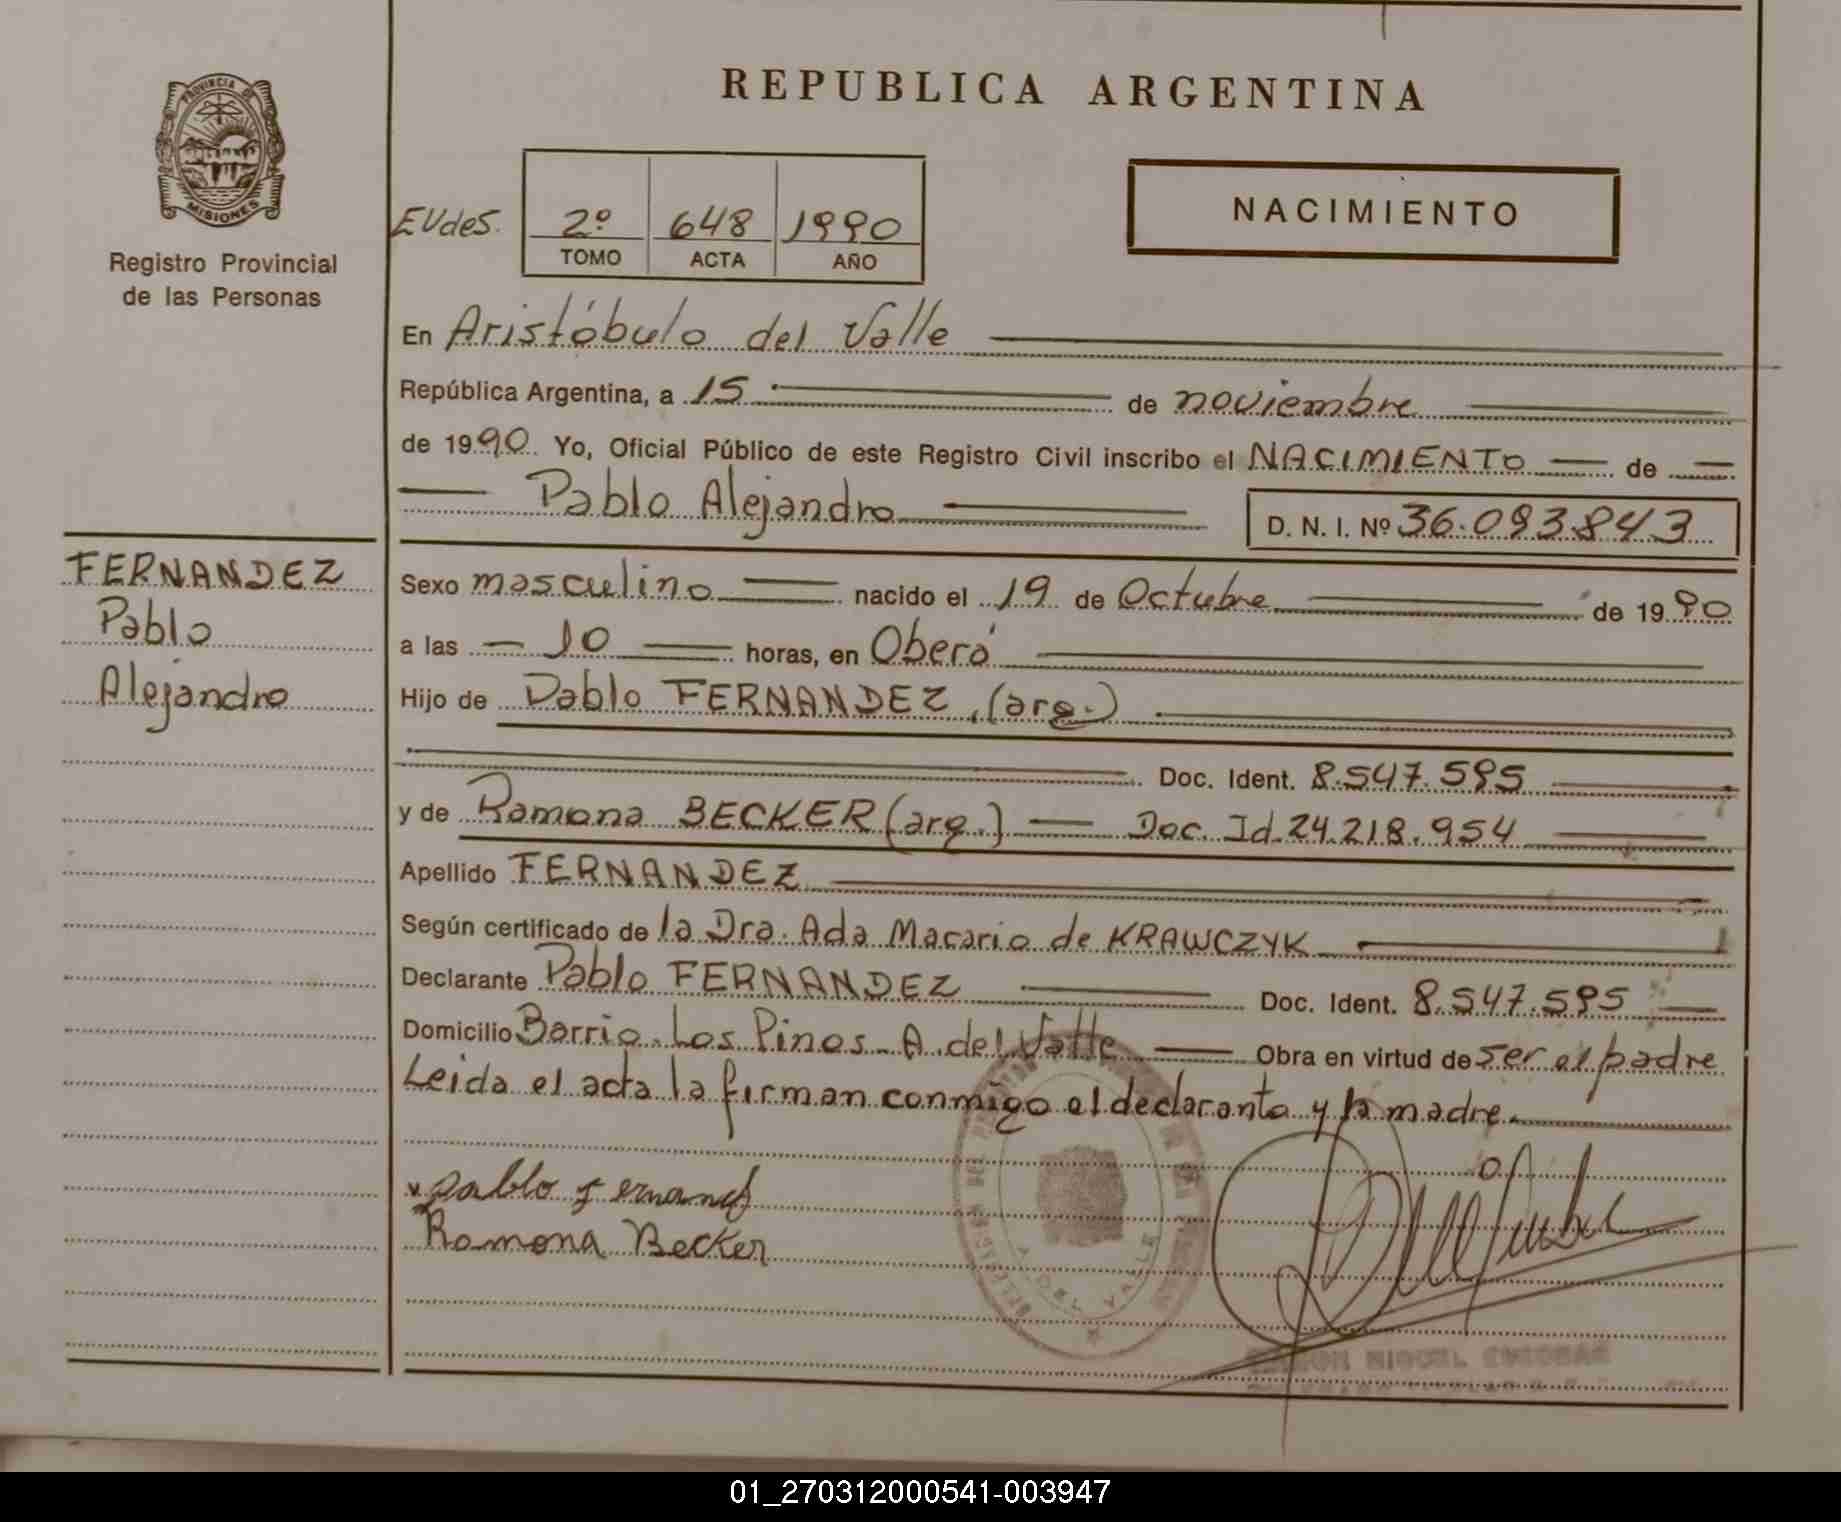 REPUBLICA ARGENTINA
PROVINCIA DE
MISIONES
Registro Provincial
de las Personas
EVdeS.
2º 648 1990
TOMO ACTA AÑO
NACIMIENTO
En Aristóbulo del Valle
República Argentina, a 15 de noviembre
de 1990 Yo, Oficial Público de este Registro Civil inscribo el NACIMIENTO de
Pablo Alejandro
D. N. I. Nº 36.093.843
FERNANDEZ
Pablo
Alejandro
Sexo masculino nacido el 19 de Octubre de 1990
a las 10 horas, en Oberá
Hijo de Pablo FERNANDEZ (arg.)
Doc. Ident. 8.547.595
y de Ramona BECKER (arg.) Doc. Id. 24.218.954
Apellido FERNANDEZ
Según certificado de la Dra. Ada Macario de KRAWCZYK
Declarante Pablo FERNANDEZ Doc. Ident. 8.547.595
Domicilio Barrio Los Pinos - A. del Valle Obra en virtud de ser el padre
Leida el acta la firman conmigo el declarante y la madre.
pablo fernand
Ramona Becker
MIGUEL
01_270312000541-003947